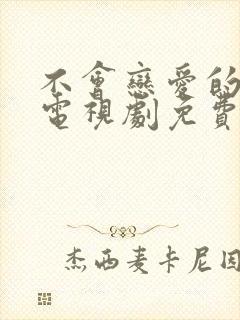 不會戀愛的
電視劇免費
杰西麦卡尼因